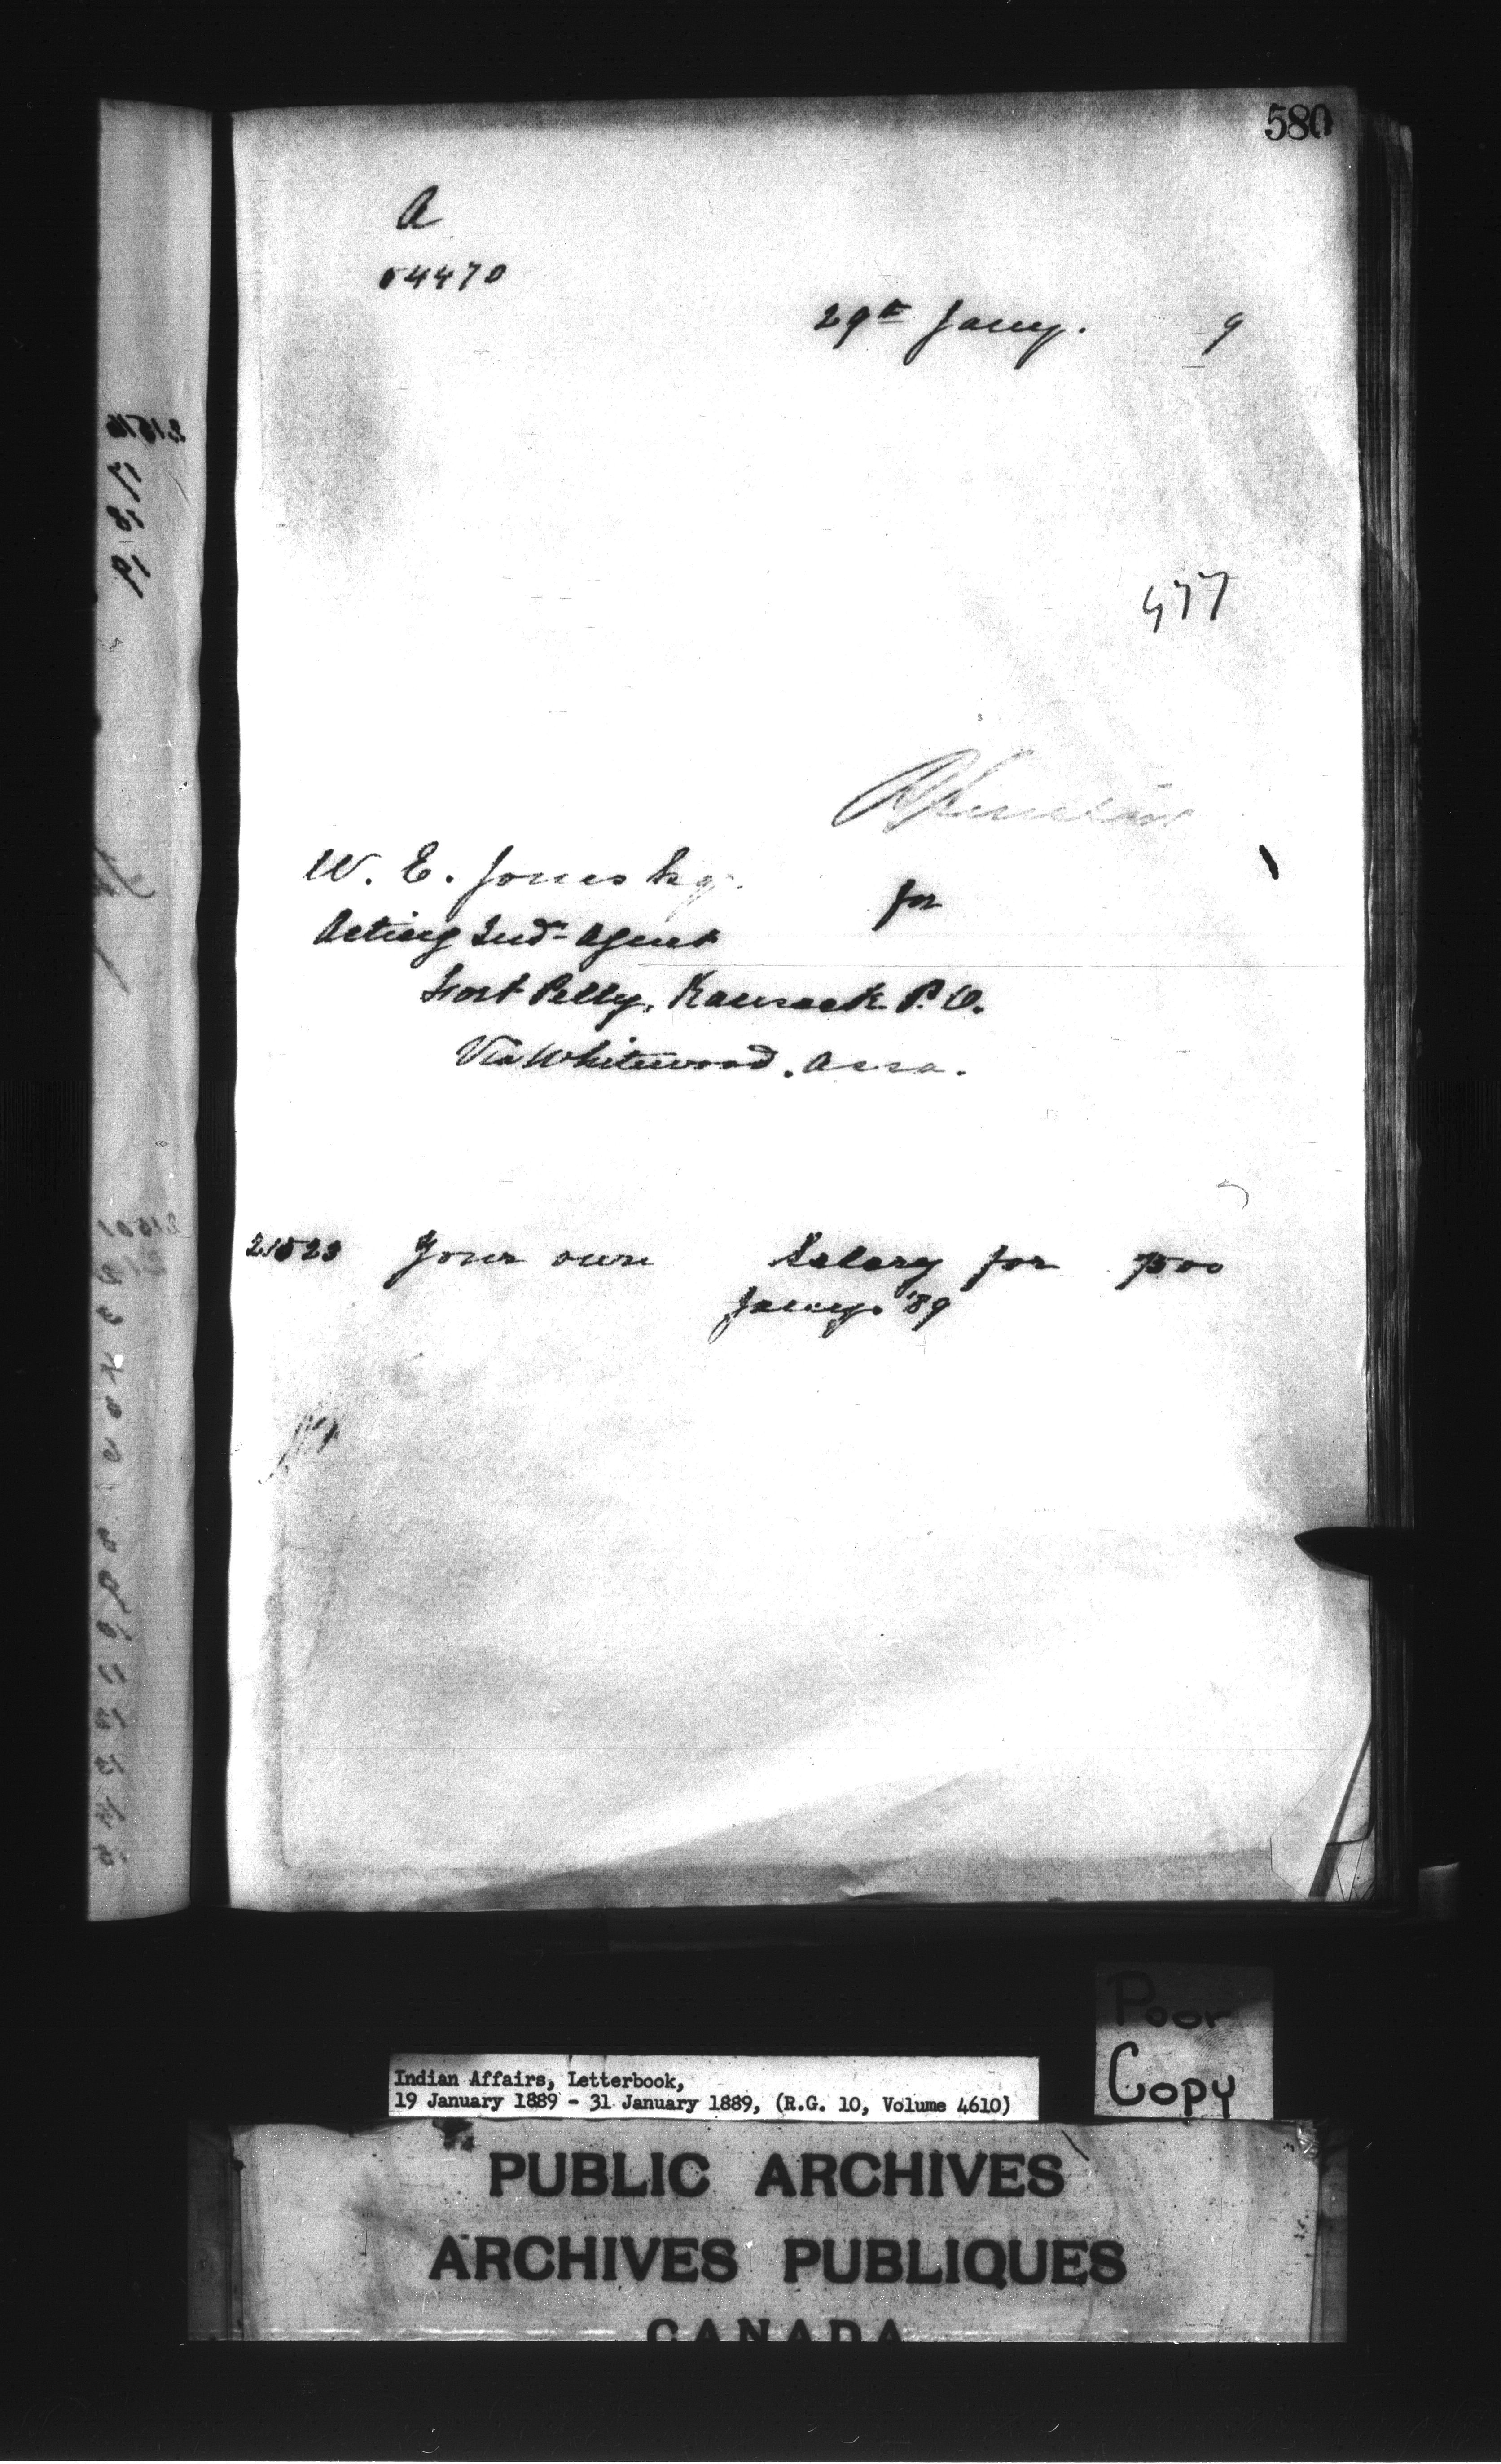 580
A
54470
29th Jany. 9
477
W. E. Jones Esq.
for
Acting Ind. Agent
Fort Pelly, Kamsack P.O.
Via Whitewood. Assa.
21523 Your own Salary for 7500
Jany. '89
Poor
Copy
Indian Affairs, Letterbook,
19 January 1889 - 31 January 1889, (R.G. 10, Volume 4610)
PUBLIC ARCHIVES
ARCHIVES PUBLIQUES
CANADA